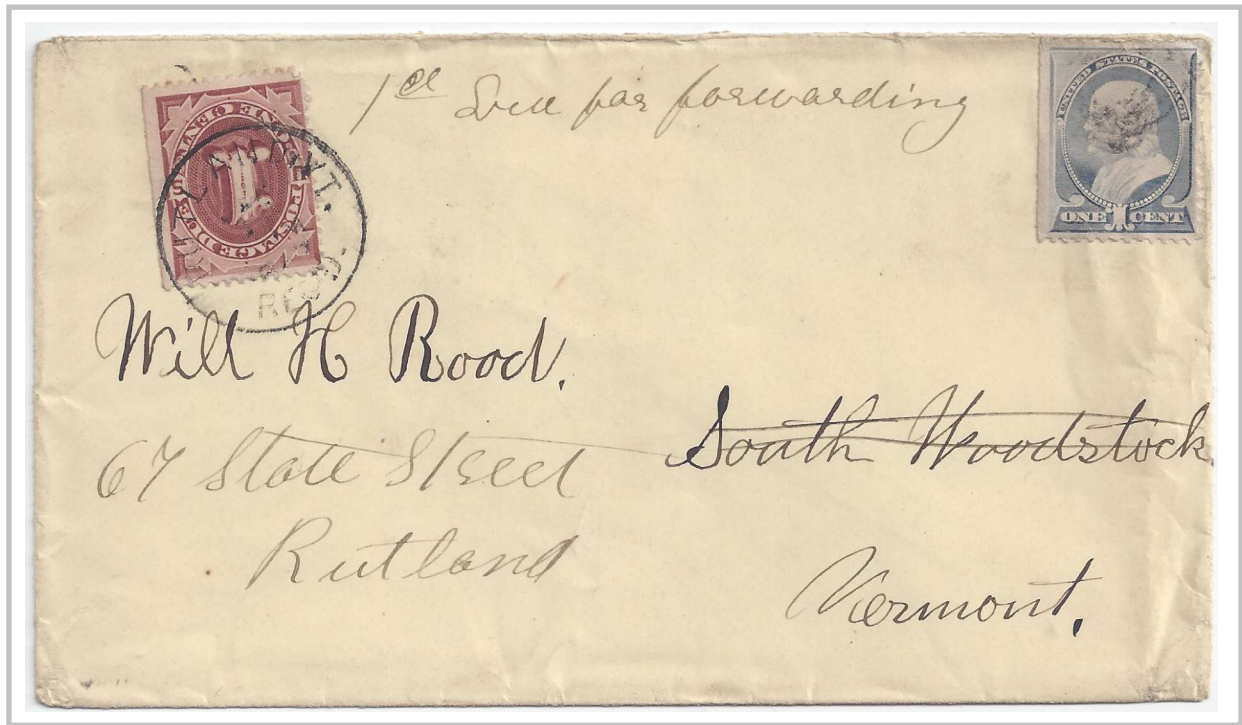 1ct Due for forwarding
UNITED STATES POSTAGE
ONE 1 CENT
ONE CENT
1
POSTAGE DUE
RUTLAND, VT.
REC'D.
Will H Rood.
67 State Street
Rutland
South Woodstock.
Vermont.